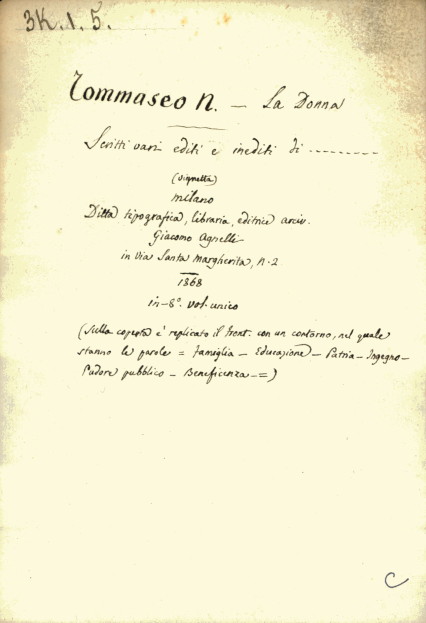 3K.1.5.
Tommaseo N. — La Donna
Scritti vari editi e inediti di --------
(vignetta)
milano
Ditta tipografica, libraria, editrice arciv.
Giacomo Agnelli
in via Santa Margherita, n. 2
1868
in-8º. vol. unico
(Sulla coperta è replicato il front. con un contorno, nel quale
stanno le parole = Famiglia — Educazione — Patria — Ingegno —
Pudore pubblico — Beneficenza — =)
C